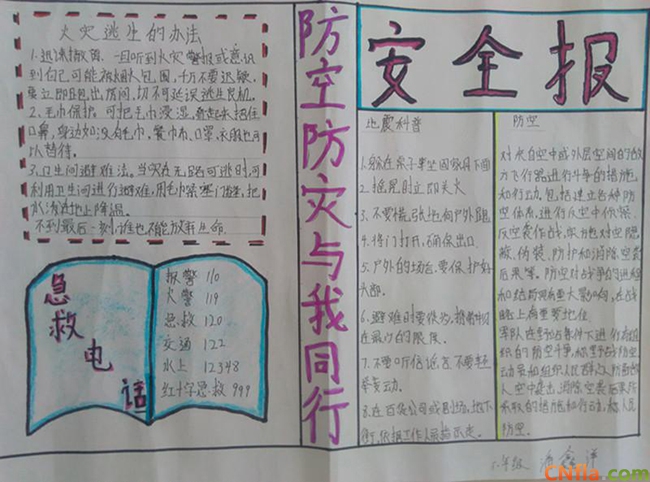 火灾逃生的办法
1.迅速撤离。一旦听到火灾警报或意识
到自己可能被烟火包围,千万不要迟疑,
要立即跑出房间,切不可延误逃生良机。
2.毛巾保护。可把毛巾浸湿,叠起来捂住
口鼻,身边如没有毛巾,餐巾布、口罩
以替待。
3.卫生间避难法。当实在无路可逃时,可
利用卫生间进行避难,用毛巾紧塞门缝,把
水泼在地上降温。
不到最后一刻,谁也不能放弃生命.
急救电话
报警 110
火警 119
急救 120
交通 122
水上 12348
红十字急救 999
防空防灾与我同行
安全报
地震科普
1.躲在桌子等坚固家具下面
2.摇晃时立即关火
3.不要慌张地向户外跑
4.将门打开,确保出口.
5.户外的场合,要保护好
头部.
7.不要听信谣言不要轻
举妄动.
8.在百货公司或剧场,地下
街,依据工作人员指示走.
防空
对来自空中或外层空间的敌
方飞行器进行斗争的措施
和行动.包括建立各种防
空体系,进行反空中侦察、
反空袭作战,以及对空隐
蔽、伪装、防护和消除空袭
后果等。防空对战争的进程
和结局有重大影响,在战
略上有重要地位
军队在野战条件下进行有组
织的防空斗争,称野战防空
空中袭击,消除空袭后果所
采取的措施和行动,称人民
防空.
六年级
CNfla.com